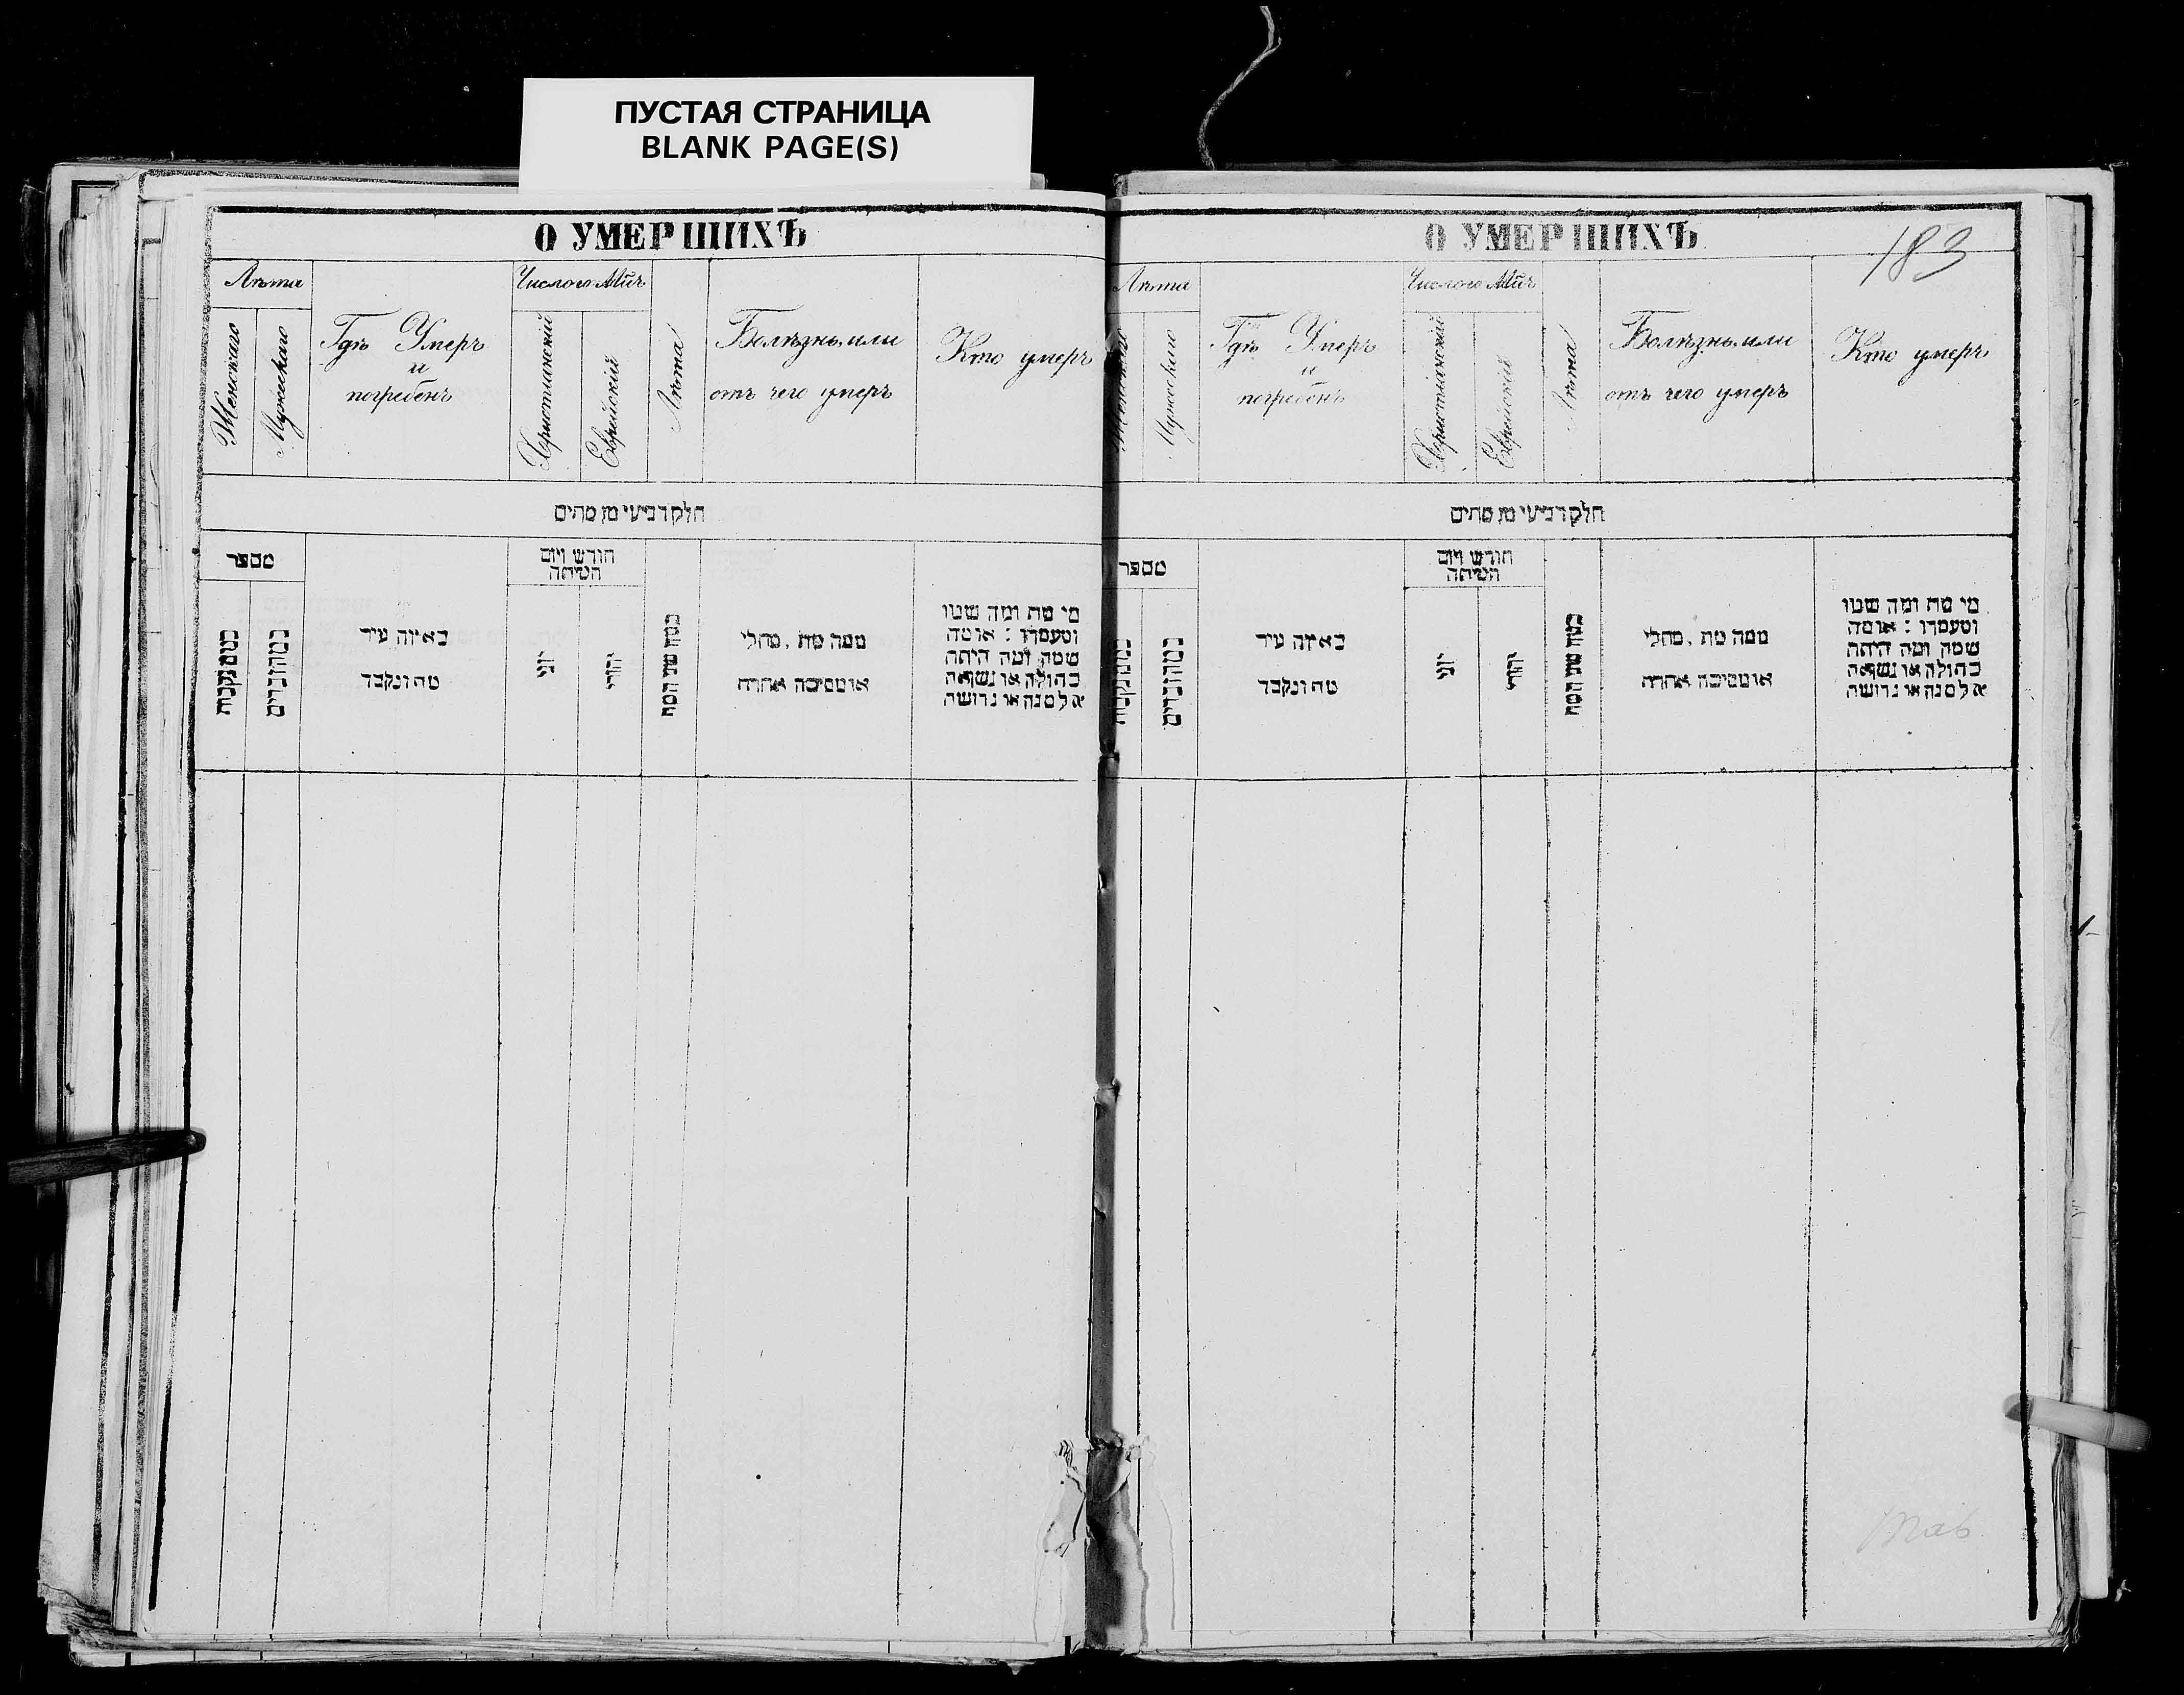 ПУСТАЯ СТРАНИЦА
BLANK PAGE(S)
О УМЕРШИХЪ
Лѣта
Женскаго
Мужескаго
Гдѣ Умеръ
и
погребенъ
Число и Мѣ̃
Христіанскій
Еврейскій
Лѣта
Болѣзнь или
отъ чего умеръ
Кто умеръ
חלק רביעי מן מתים
מספר
כמה נקבות
כמה זכרים
באיזה עיר
מת ונקבר
חודש ויום
המיתה
יוני
יהודי
כמה שני המת
ממה מת, מחלי
או מסיבה אחרת
מי מת ומה שמו
ומעמדו : או מה
שמה ומה היתה
בתולה או נשואה
אלמנה או גרושה
О УМЕРШИХЪ
183
Лѣта
Женскаго
Мужескаго
Гдѣ Умеръ
и
погребенъ
Христіанскій
Еврейскій
Лѣта
Болѣзнь или
отъ чего умеръ
Кто умеръ
חלק רביעי מן מתים
מספר
כמה זכרים
באיזה עיר
מת ונקבר
חודש ויום
המיתה
יוני
יהודי
כמה שני המת
ממה מת, מחלי
או מסיבה אחרת
מי מת ומה שמו
ומעמדו : או מה
שמה ומה היתה
בתולה או נשואה
אלמנה או גרושה